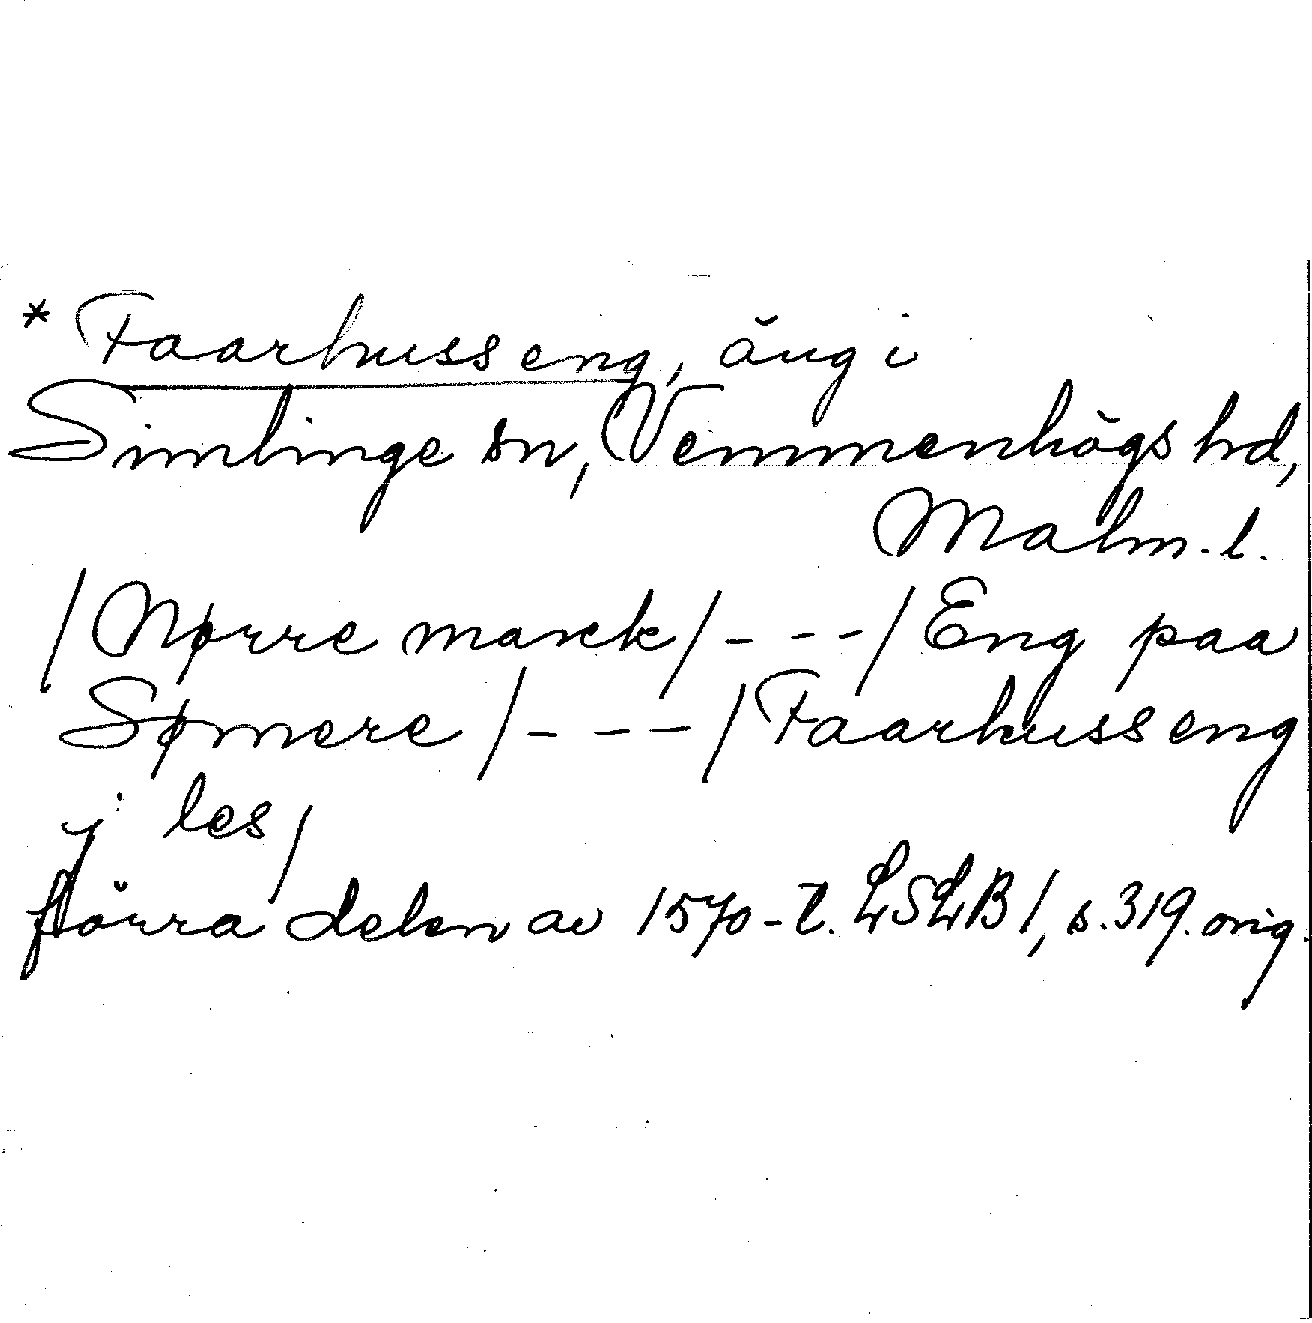 * Faarhuss eng, äng i
Simlinge sn, Vemmenhögs hd,
Malm. l.
/ Nørre marck / - - - / Eng paa
Sømere / - - - / Faarhuss eng
j les /
förra delen av 1570-t. LSLB 1, s. 319. orig.